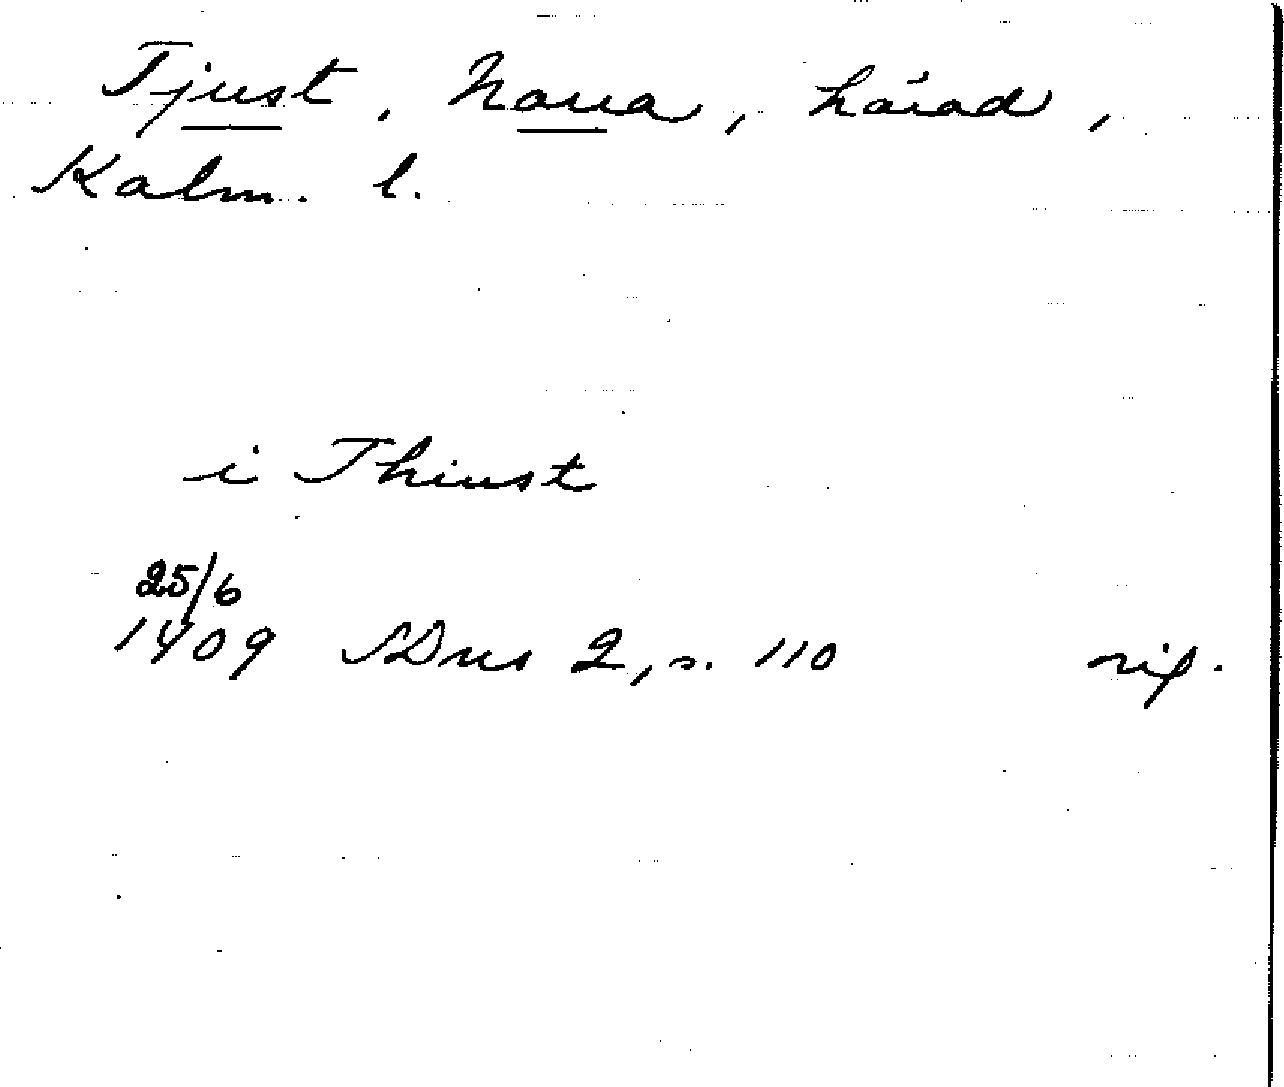 Tjust, Norra, härad,
Kalm. l.
i Thiust
25/6
1409 SDns 2, s. 110